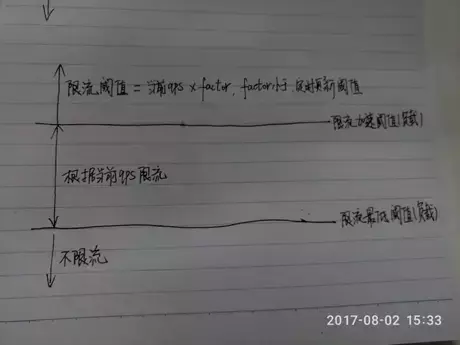 限流阈值 = 当前qps × factor, factor小于 定时更新阈值
限流加速阈值(负载)
根据当前qps限流
限流最低阈值(负载)
不限流
2017-08-02 15:33